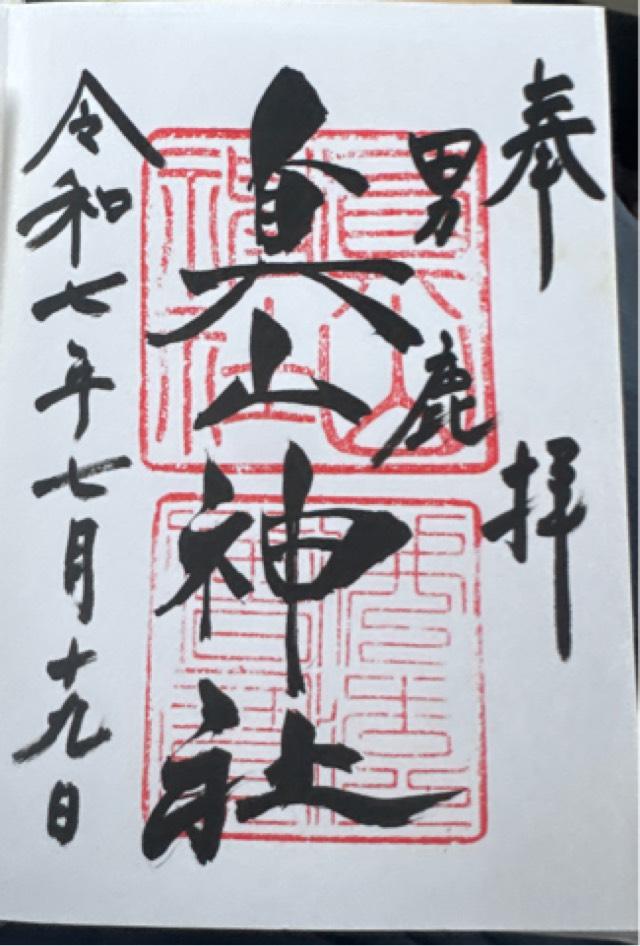 奉拝
男鹿
真山神社
令和七年七月十九日